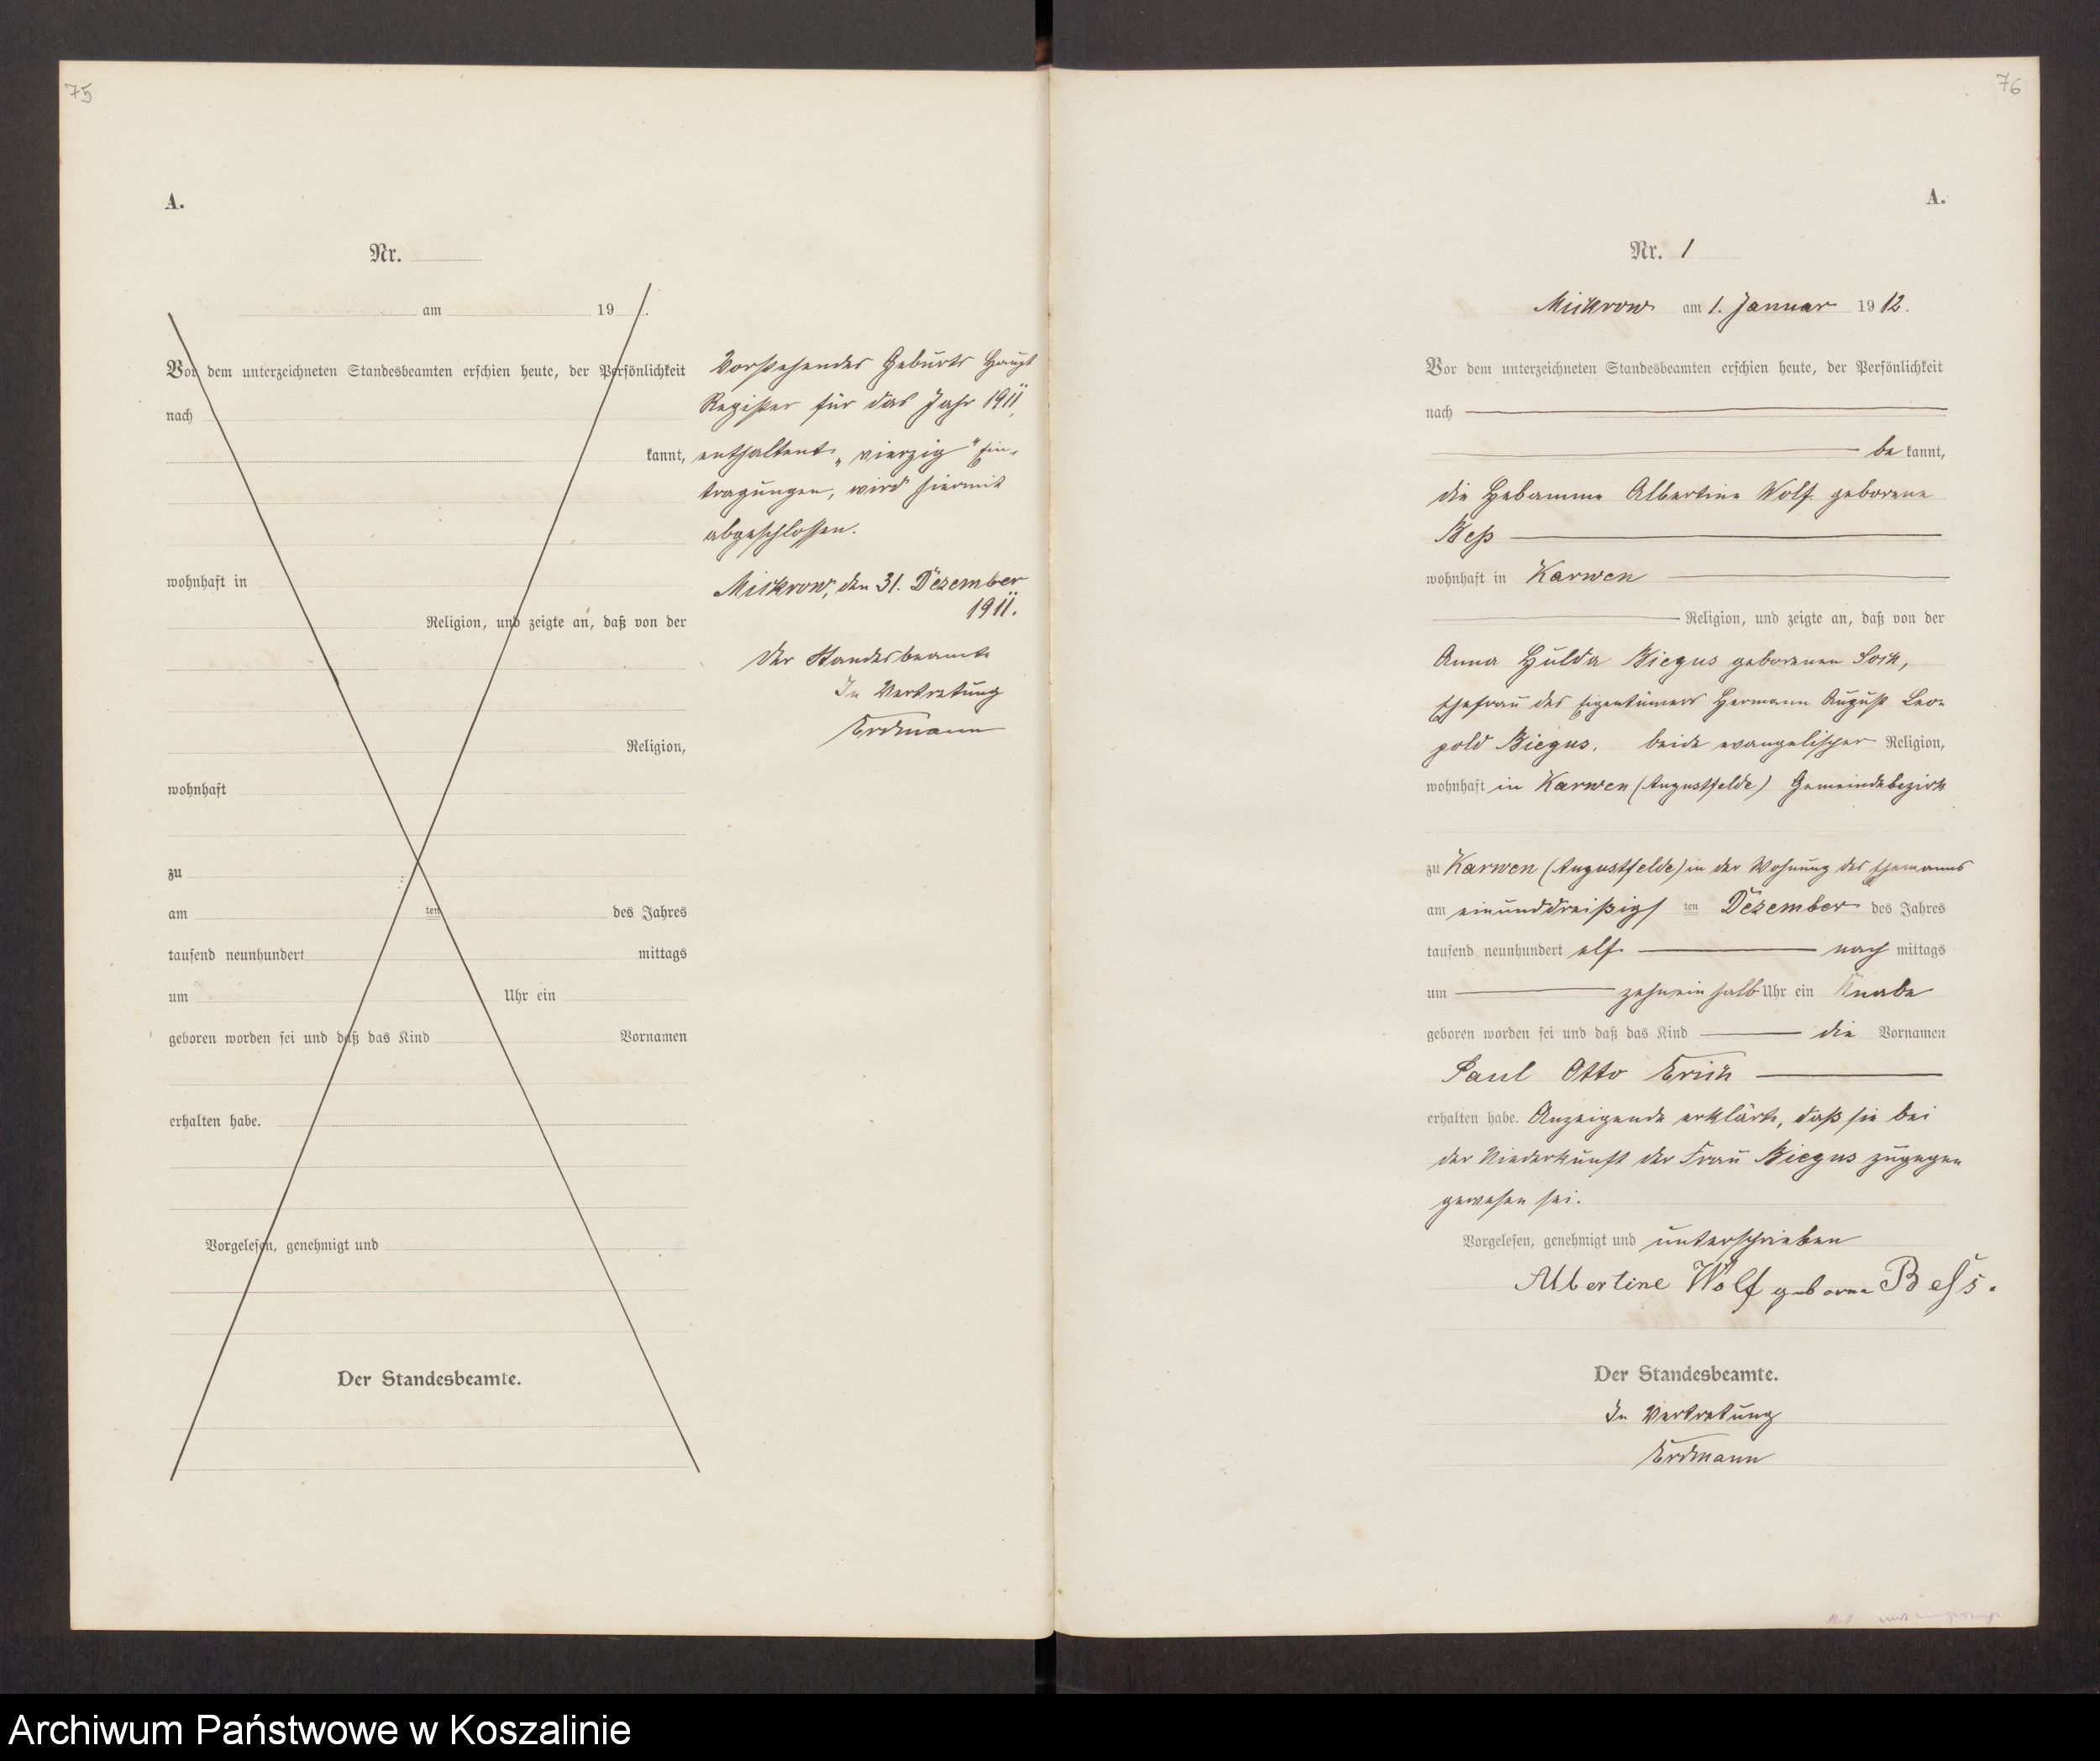 75
A.
Nr.
am 19 .
Vor dem unterzeichneten Standesbeamten erschien heute, der Persönlichkeit
nach
kannt,
wohnhaft in
Religion, und zeigte an, daß von der
Religion,
wohnhaft
zu
am ten des Jahres
tausend neunhundert mittags
um Uhr ein
geboren worden sei und daß das Kind Vornamen
erhalten habe.
Vorgelesen, genehmigt und
Der Standesbeamte.
Vorstehendes Geburts Haupt
Register für das Jahr 1911,
enthaltend „vierzig" Ein-
tragungen, wird hiermit
abgeschlossen.
Mickrow, den 31. Dezember
1911.
Der Standesbeamte
In Vertretung
Erdmann
76
A.
Nr. 1
Mickrow am 1. Januar 1912.
Vor dem unterzeichneten Standesbeamten erschien heute, der Persönlichkeit
nach
be kannt,
die Hebamme Albertine Wolf geborene
Beß
wohnhaft in Karwen
Religion, und zeigte an, daß von der
Anna Hulda Biegus geborenen Sock,
Ehefrau des Eigentümers Hermann August Leo-
pold Biegus, beide evangelischer Religion,
wohnhaft in Karwen (Augustfelde) Gemeindebezirk
zu Karwen (Augustfelde) in der Wohnung des Ehemanns
am einunddreißigs ten Dezember des Jahres
tausend neunhundert elf nach mittags
um zehneinhalb Uhr ein Knabe
geboren worden sei und daß das Kind die Vornamen
Paul Otto Erich
erhalten habe. Anzeigende erklärte, daß sie bei
der Niederkunft der Frau Biegus zugegen
gewesen sei.
Vorgelesen, genehmigt und unterschrieben
Albertine Wolf geborne Beſs.
Der Standesbeamte.
In Vertretung
Erdmann
Archiwum Państwowe w Koszalinie